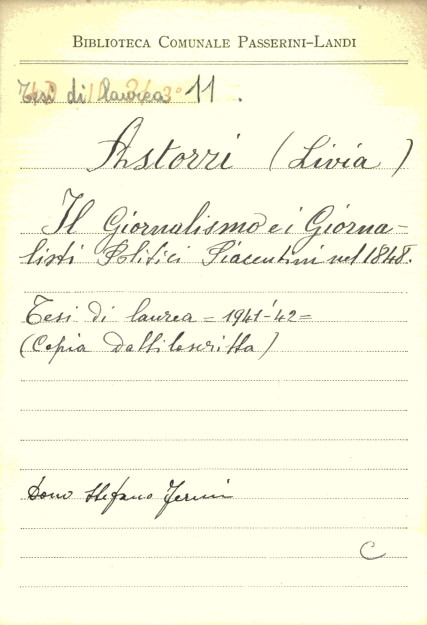 BIBLIOTECA COMUNALE PASSERINI-LANDI
Tesi di laurea 11.
Astorri (Livia)
Il Giornalismo e i Giorna-
listi Politici Piacentini nel 1848.
Tesi di laurea = 1941-42 =
(Copia dattiloscritta)
Dono Stefano Fermi
C